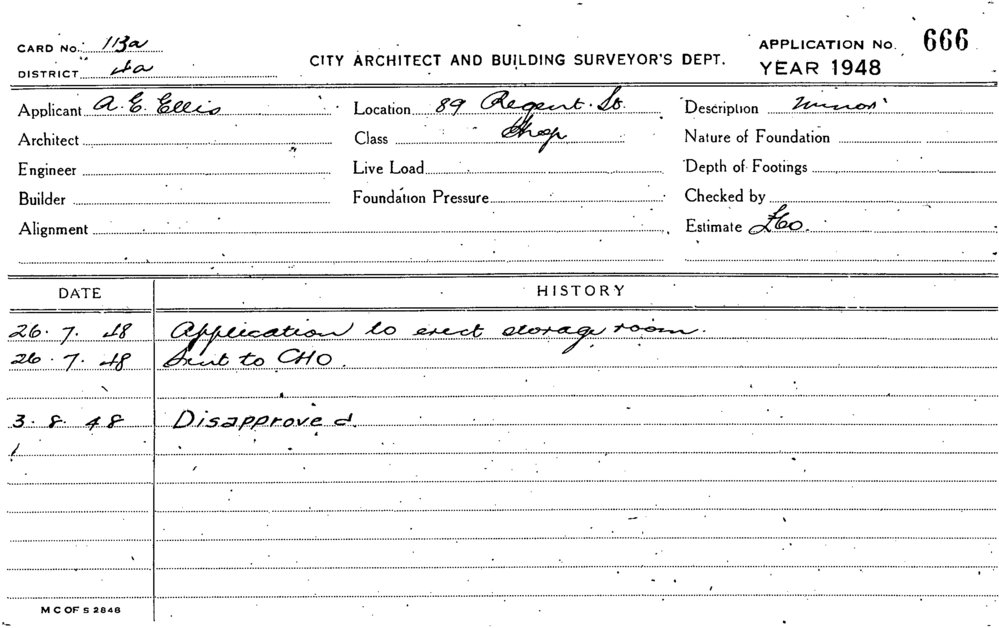 CARD No. 113a
DISTRICT 4a
CITY ARCHITECT AND BUILDING SURVEYOR'S DEPT.
APPLICATION No. 666
YEAR 1948
Applicant A. E. Ellis Location 89 Regent St. Description Minor
Architect Class Shop Nature of Foundation
Engineer Live Load Depth of Footings
Builder Foundation Pressure Checked by
Alignment Estimate £60.
DATE HISTORY
26.7.48 Application to erect storage room.
26.7.48 Sent to CHO.
3.8.48 Disapproved.
M C OF S 2848